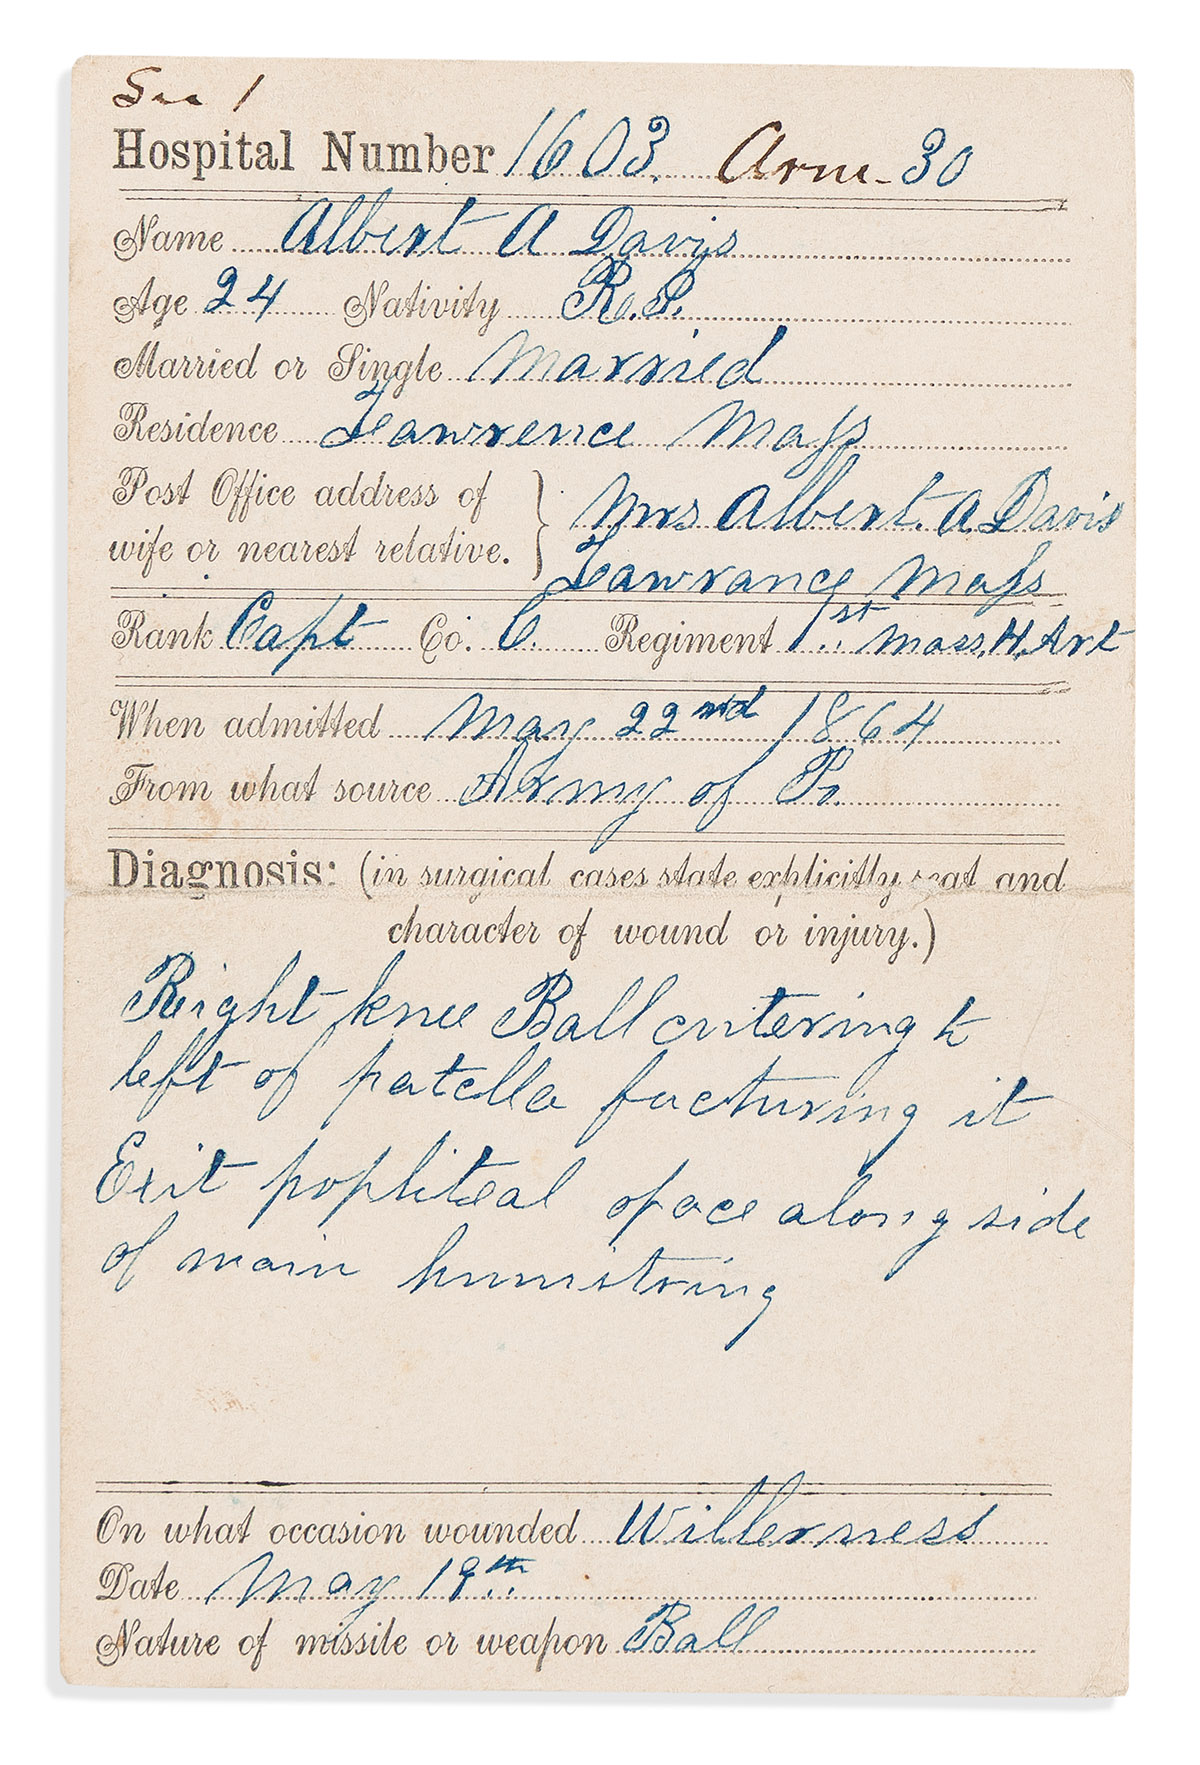 Sec 1
Hospital Number 1603. Arm-30
Name Albert A Davis
Age 24 Nativity R.I.
Married or Single Married
Residence Lawrence Mass
Post Office address of
wife or nearest relative. } Mrs Albert. A. Davis
Lawrance Mass
Rank Capt Co. C. Regiment 1st Mass. H. Art
When admitted May 22nd 1864
From what source Army of P.
Diagnosis: (in surgical cases state explicitly seat and
character of wound or injury.)
Right knee Ball entering to
left of patella facturing it
Exit popliteal space along side
of main hamstring
On what occasion wounded Willerness
Date May 19th
Nature of missile or weapon Ball